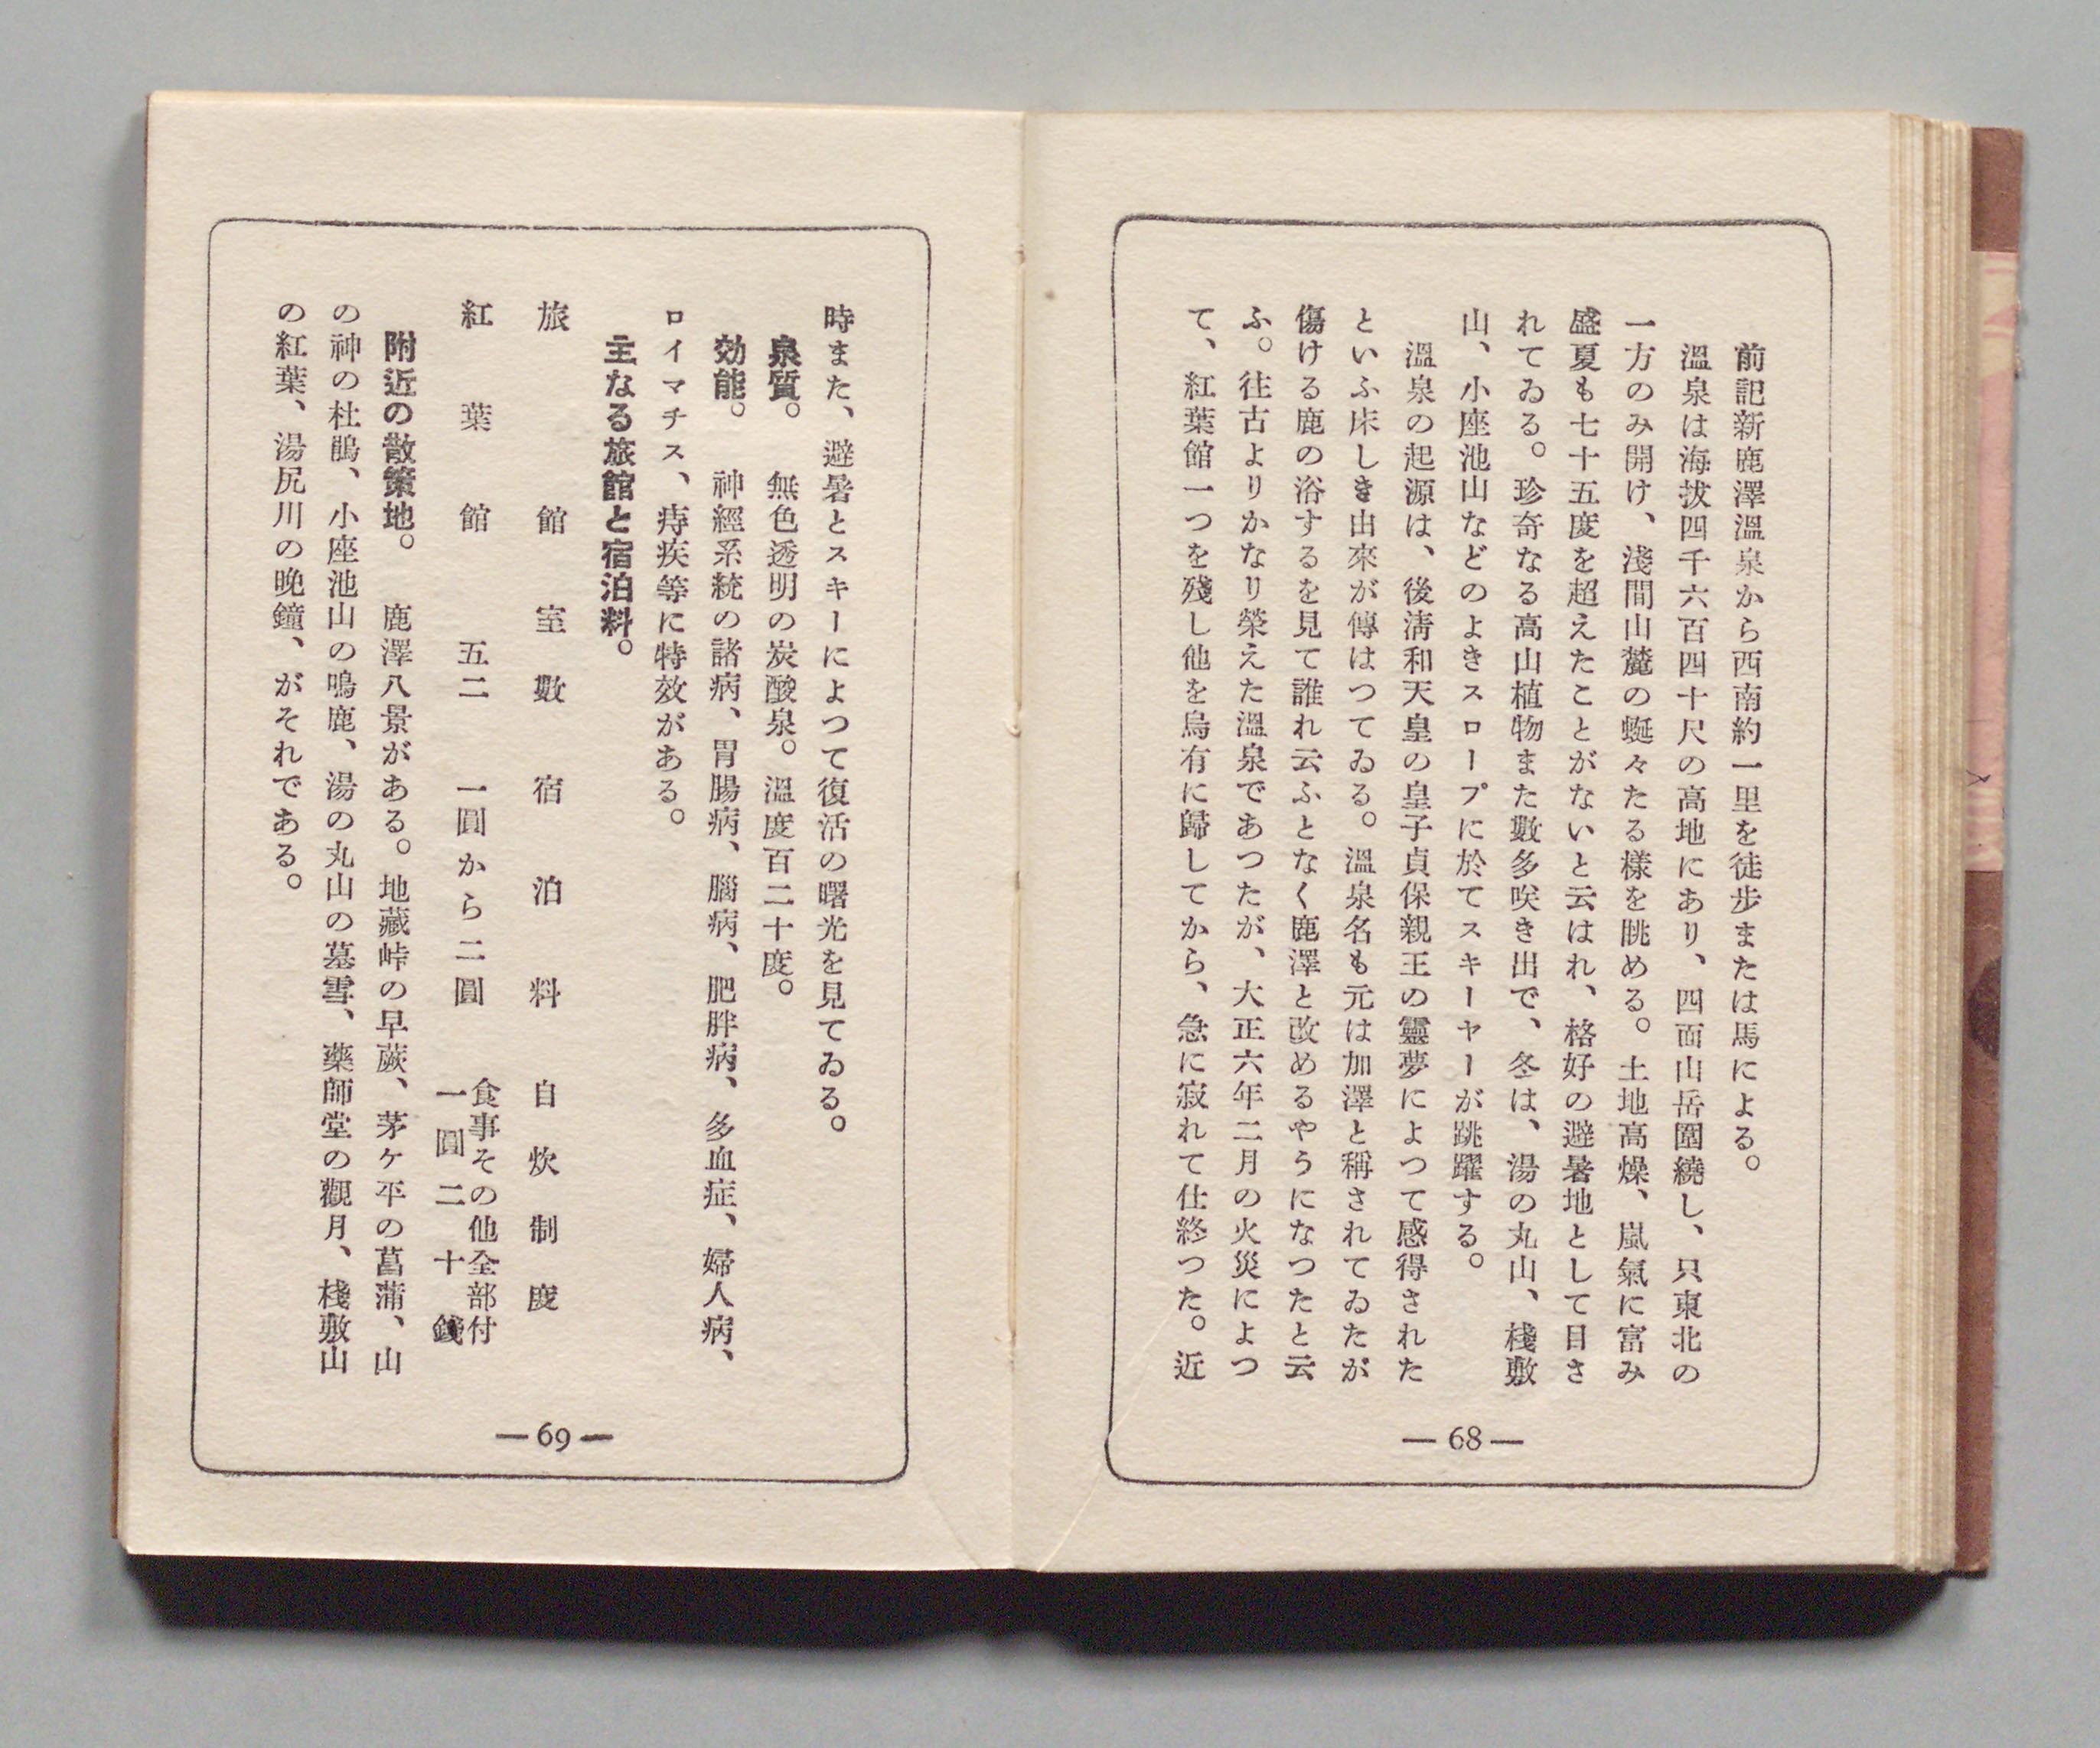 前記新鹿澤溫泉から西南約一里を徒歩または馬による。
溫泉は海拔四千六百四十尺の高地にあり、四面山岳圍繞し、只東北の
一方のみ開け、淺間山麓の蜒々たる樣を眺める。土地高燥、嵐氣に富み
盛夏も七十五度を超えたことがないと云はれ、格好の避暑地として目さ
れてゐる。珍奇なる高山植物また數多咲き出で、冬は、湯の丸山、棧敷
山、小座池山などのよきスロープに於てスキーヤーが跳躍する。
溫泉の起源は、後淸和天皇の皇子貞保親王の靈夢によつて感得された
といふ床しき由來が傳はつてゐる。溫泉名も元は加澤と稱されてゐたが
傷ける鹿の浴するを見て誰れ云ふとなく鹿澤と改めるやうになつたと云
ふ。往古よりかなり榮えた溫泉であつたが、大正六年二月の火災によつ
て、紅葉館一つを殘し他を烏有に歸してから、急に寂れて仕終つた。近
—68—
時また、避暑とスキーによつて復活の曙光を見てゐる。
泉質。 無色透明の炭酸泉。溫度百二十度。
効能。 神經系統の諸病、胃腸病、腦病、肥胖病、多血症、婦人病、
ロイマチス、痔疾等に特效がある。
主なる旅館と宿泊料。
旅館 室數 宿泊料 自炊制度
紅葉館 五二 一圓から二圓 食事その他全部付
一圓二十錢
附近の散策地。 鹿澤八景がある。地藏峠の早蕨、茅ケ平の菖蒲、山
の神の杜鵑、小座池山の鳴鹿、湯の丸山の墓雪、藥師堂の觀月、棧敷山
の紅葉、湯尻川の晩鐘、がそれである。
—69—